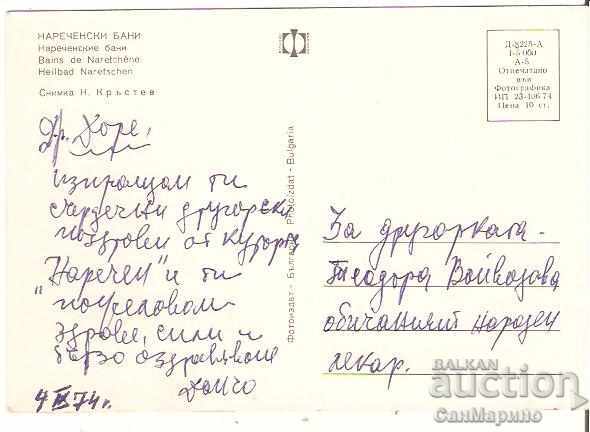 НАРЕЧЕНСКИ БАНИ
Нареченские бани
Bains de Naretchène
Heilbad Naretschen
Снимка Н. Кръстев
Др. Хоре,
Изпращам ти
сърдечни другарски
поздрави от курорта
"Наречен" и ти
пожелавам
здраве, сили и
бързо оздравяване
Дончо
4 IX 74 г.
Фотоиздат - България Photoizdat - Bulgaria
Д-8225-А
А-5
Отпечатано
във
Фотографика
ИП 23-106-74
Цена 10 ст.
За другарката -
Теодора Войвозова
обичаният народен
лекар.
BALKAN
auction
СанМарино